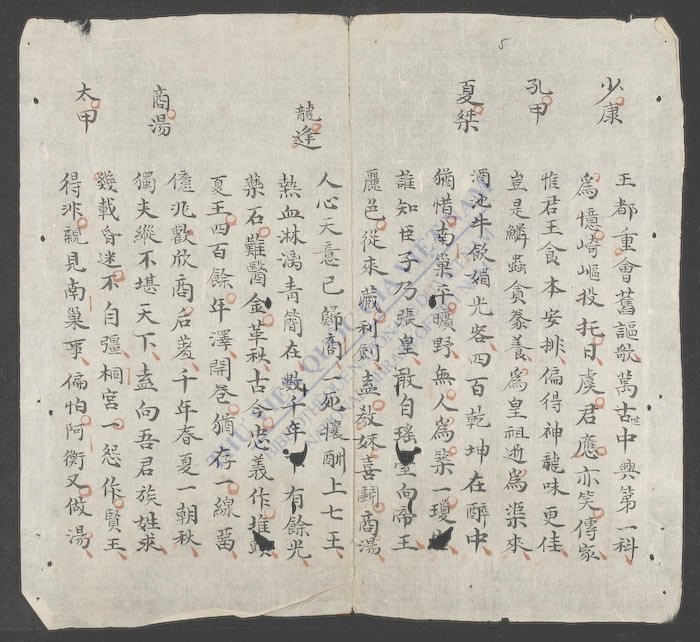 5
少康
王都重會舊謳歌萬古世中興第一科
爲憶崎嶇投托日虞君應亦笑傳家
孔甲
惟君王食本安排偏得神龍味更佳
豈是鱗蟲貪豢養爲皇祖逝爲渠來
夏桀
酒池牛飲媚光容四百乾坤在醉中
猶惜南巢平曠野無人爲築一瓊
誰知臣子乃張皇敢自瑤臺向帝王
麗色從來藏利劍盍教妹喜嗣商湯
龍逢
人心天意已歸商死穰酬上七王
熱血淋漓青簡在數千年有餘光
藥石難醫金革秋古今忠義作堆頭
夏王四百餘年澤開卷猶存一線留
商湯
億兆歡欣商后 千年春夏一朝秋
獨夫縱不堪天下盍向吾君族姓求
太甲
幾載昏迷不自彊桐宮一怨作賢王
得非親見南巢事偏怕阿衡又做湯
THƯ VIỆN QUỐC GIA VIỆT NAM